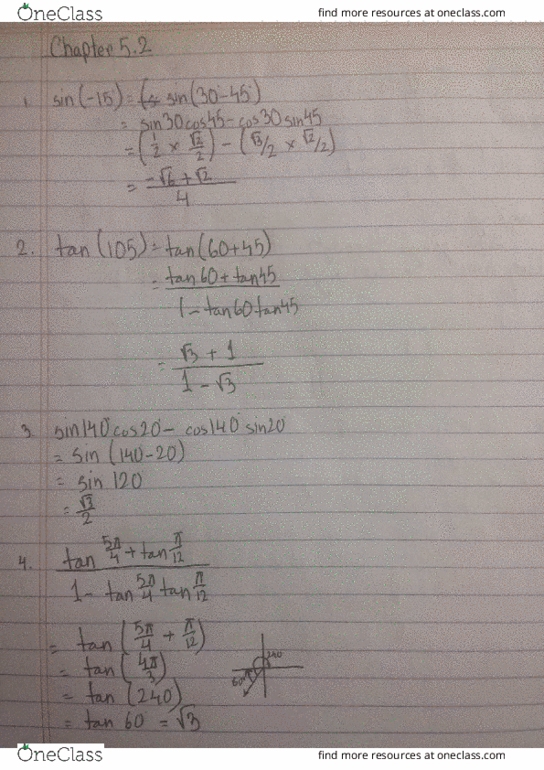 OneClass find more resources at oneclass.com
Chapter 5.2
1. sin(-15°) = sin(30°-45°)
= sin30cos45-cos30sin45
= (1/2 × √2/2) - (√3/2 × √2/2)
= (-√6+√2)/4
2. tan(105) = tan(60+45)
= (tan60+tan45)/(1-tan60tan45)
= (√3+1)/(1-√3)
3. sin140°cos20° - cos140° sin20
= sin(140-20)
= sin 120
= √3/2
4. (tan 5π/4 + tan π/12)/(1 - tan 5π/4 tan π/12)
= tan(5π/4 + π/12)
= tan(4π/3)
= tan(240)
= tan 60 = √3
60
OneClass find more resources at oneclass.com